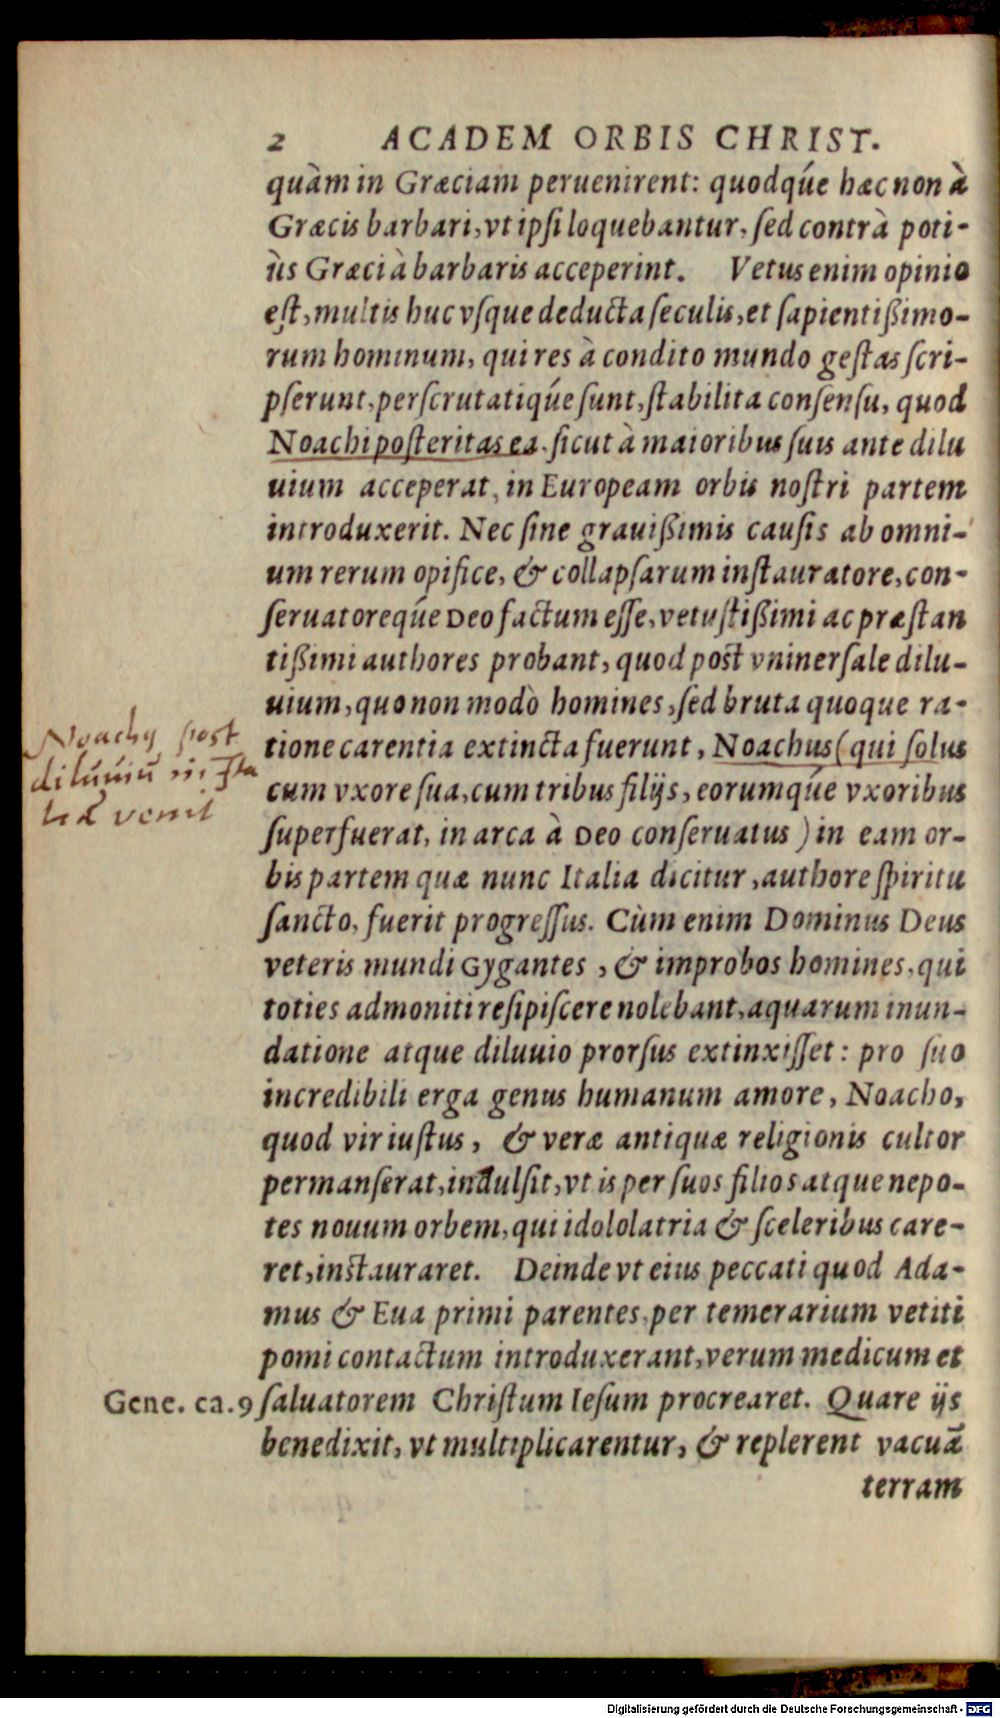 2 ACADEM ORBIS CHRIST.
quàm in Græciam peruenirent: quodq́ue hæc non à
Græcis barbari, vt ipsi loquebantur, sed contrà poti-
ùs Græci à barbaris acceperint. Vetus enim opinio
est, multis huc vsque deducta seculis, et sapientißimo-
rum hominum, qui res à condito mundo gestas scri-
pserunt, perscrutatiq́ue sunt, stabilita consensu, quod
Noachi posteritas ea, sicut à maioribus suis ante dilu
uium acceperat, in Europeam orbis nostri partem
introduxerit. Nec sine grauißimis causis ab omni-
um rerum opifice, & collapsarum instauratore, con-
seruatoreq́ue Deo factum esse, vetustißimi ac præstan
tißimi authores probant, quod post vninersale dilu-
uium, quo non modò homines, sed bruta quoque ra-
tione carentia extincta fuerunt, Noachus (qui solus
cum vxore sua, cum tribus filijs, eorumq́ue vxoribus
superfuerat, in arca à Deo conseruatus) in eam or-
bis partem quæ nunc Italia dicitur, authore spiritu
sancto, fuerit progressus. Cùm enim Dominus Deus
veteris mundi Gygantes, & improbos homines, qui
toties admoniti resipiscere nolebant, aquarum inun-
datione atque diluuio prorsus extinxisset: pro suo
incredibili erga genus humanum amore, Noacho,
quod vir iustus, & veræ antiquæ religionis cultor
permanserat, indulsit, vt is per suos filios atque nepo-
tes nouum orbem, qui idololatria & sceleribus care-
ret, instauraret. Deinde vt eius peccati quod Ada-
mus & Eua primi parentes, per temerarium vetiti
pomi contactum introduxerant, verum medicum et
saluatorem Christum Iesum procrearet. Quare ijs
benedixit, vt multiplicarentur, & replerent vacuā
terram
Noachy post
diluuiū in Ita
liā venit
Gene. ca.9
Digitalisierung gefördert durch die Deutsche Forschungsgemeinschaft - DFG